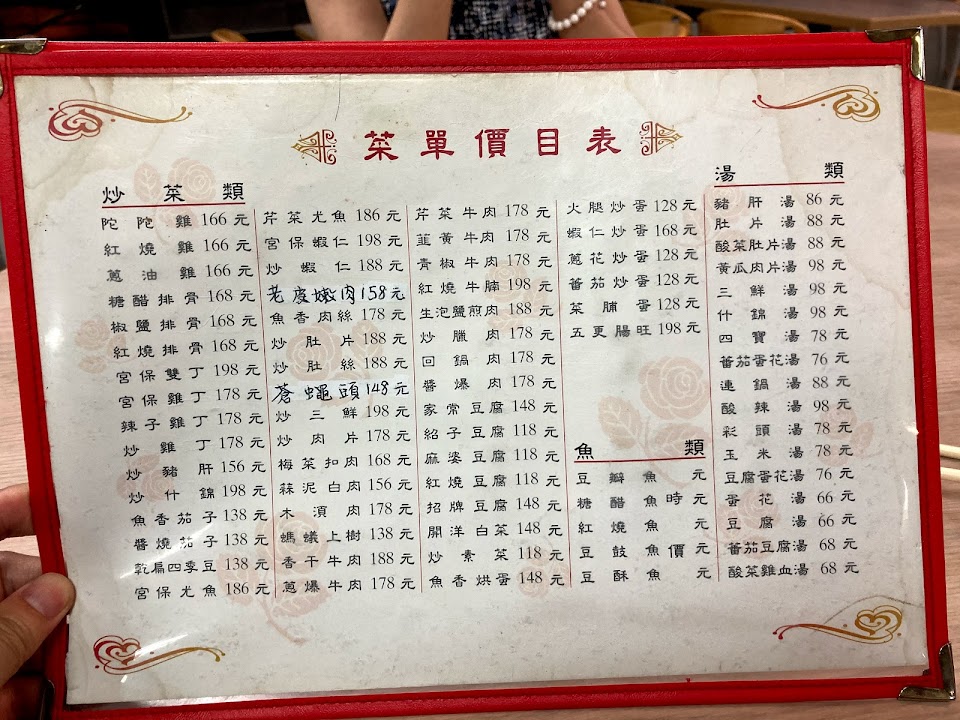 菜單價目表
炒菜類
陀陀雞 166 元
紅燒雞 166 元
蔥油雞 166 元
糖醋排骨 168 元
椒鹽排骨 168 元
紅燒排骨 168 元
宮保雙丁 198 元
宮保雞丁 178 元
辣子雞丁 178 元
炒雞丁 178 元
炒豬肝 156 元
炒什錦 198 元
魚香茄子 138 元
醬燒茄子 138 元
乾扁四季豆 138 元
宮保尤魚 186 元
芹菜尤魚 186 元
宮保蝦仁 198 元
炒蝦仁 188 元
老皮嫩肉 158 元
魚香肉絲 178 元
炒肚片 188 元
炒肚絲 188 元
蒼蠅頭 148 元
炒三鮮 198 元
炒肉片 178 元
梅菜扣肉 168 元
蒜泥白肉 156 元
木須肉 178 元
螞蟻上樹 138 元
香干牛肉 188 元
蔥爆牛肉 178 元
芹菜牛肉 178 元
韮黃牛肉 178 元
青椒牛肉 178 元
紅燒牛腩 198 元
生泡鹽煎肉 188 元
炒臘肉 178 元
回鍋肉 178 元
醬爆肉 178 元
家常豆腐 148 元
紹子豆腐 118 元
麻婆豆腐 118 元
紅燒豆腐 118 元
招牌豆腐 148 元
開洋白菜 148 元
炒素菜 118 元
魚香烘蛋 148 元
火腿炒蛋 128 元
蝦仁炒蛋 168 元
蔥花炒蛋 128 元
蕃茄炒蛋 128 元
菜脯蛋 128 元
五更腸旺 198 元
魚類
豆瓣魚 元
糖醋魚 時 元
紅燒魚 元
豆鼓魚 價 元
豆酥魚 元
湯類
豬肝湯 86 元
肚片湯 88 元
酸菜肚片湯 88 元
黃瓜肉片湯 98 元
三鮮湯 98 元
什錦湯 98 元
四寶湯 78 元
蕃茄蛋花湯 76 元
連鍋湯 88 元
酸辣湯 98 元
彩頭湯 78 元
玉米湯 78 元
豆腐蛋花湯 76 元
蛋花湯 66 元
豆腐湯 66 元
蕃茄豆腐湯 68 元
酸菜雞血湯 68 元